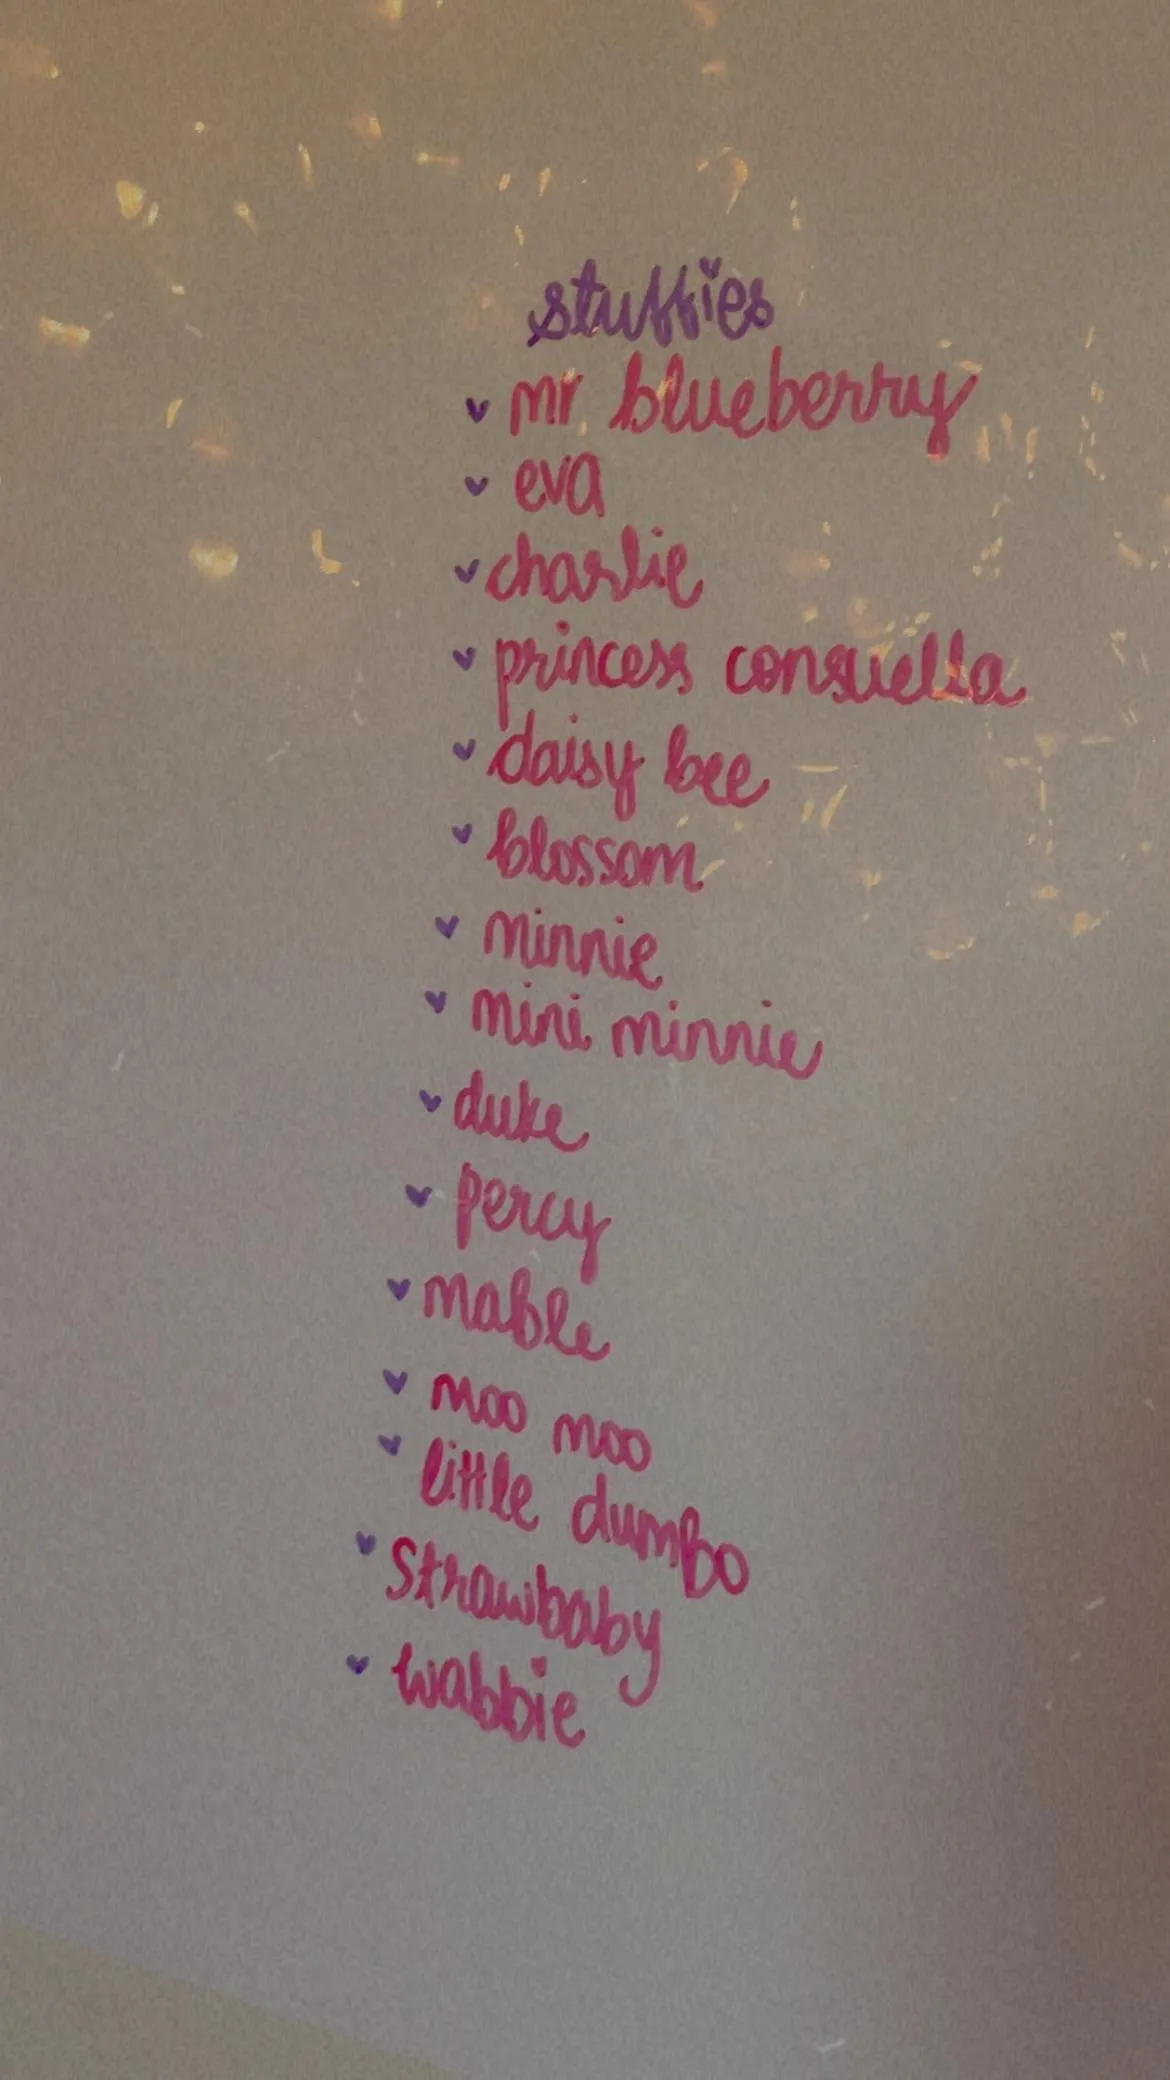 stuffies
mr. blueberry
eva
charlie
princess consuella
daisy bee
blossom
minnie
mini minnie
duke
percy
mable
moo moo
little dumbo
strawbaby
wabbie